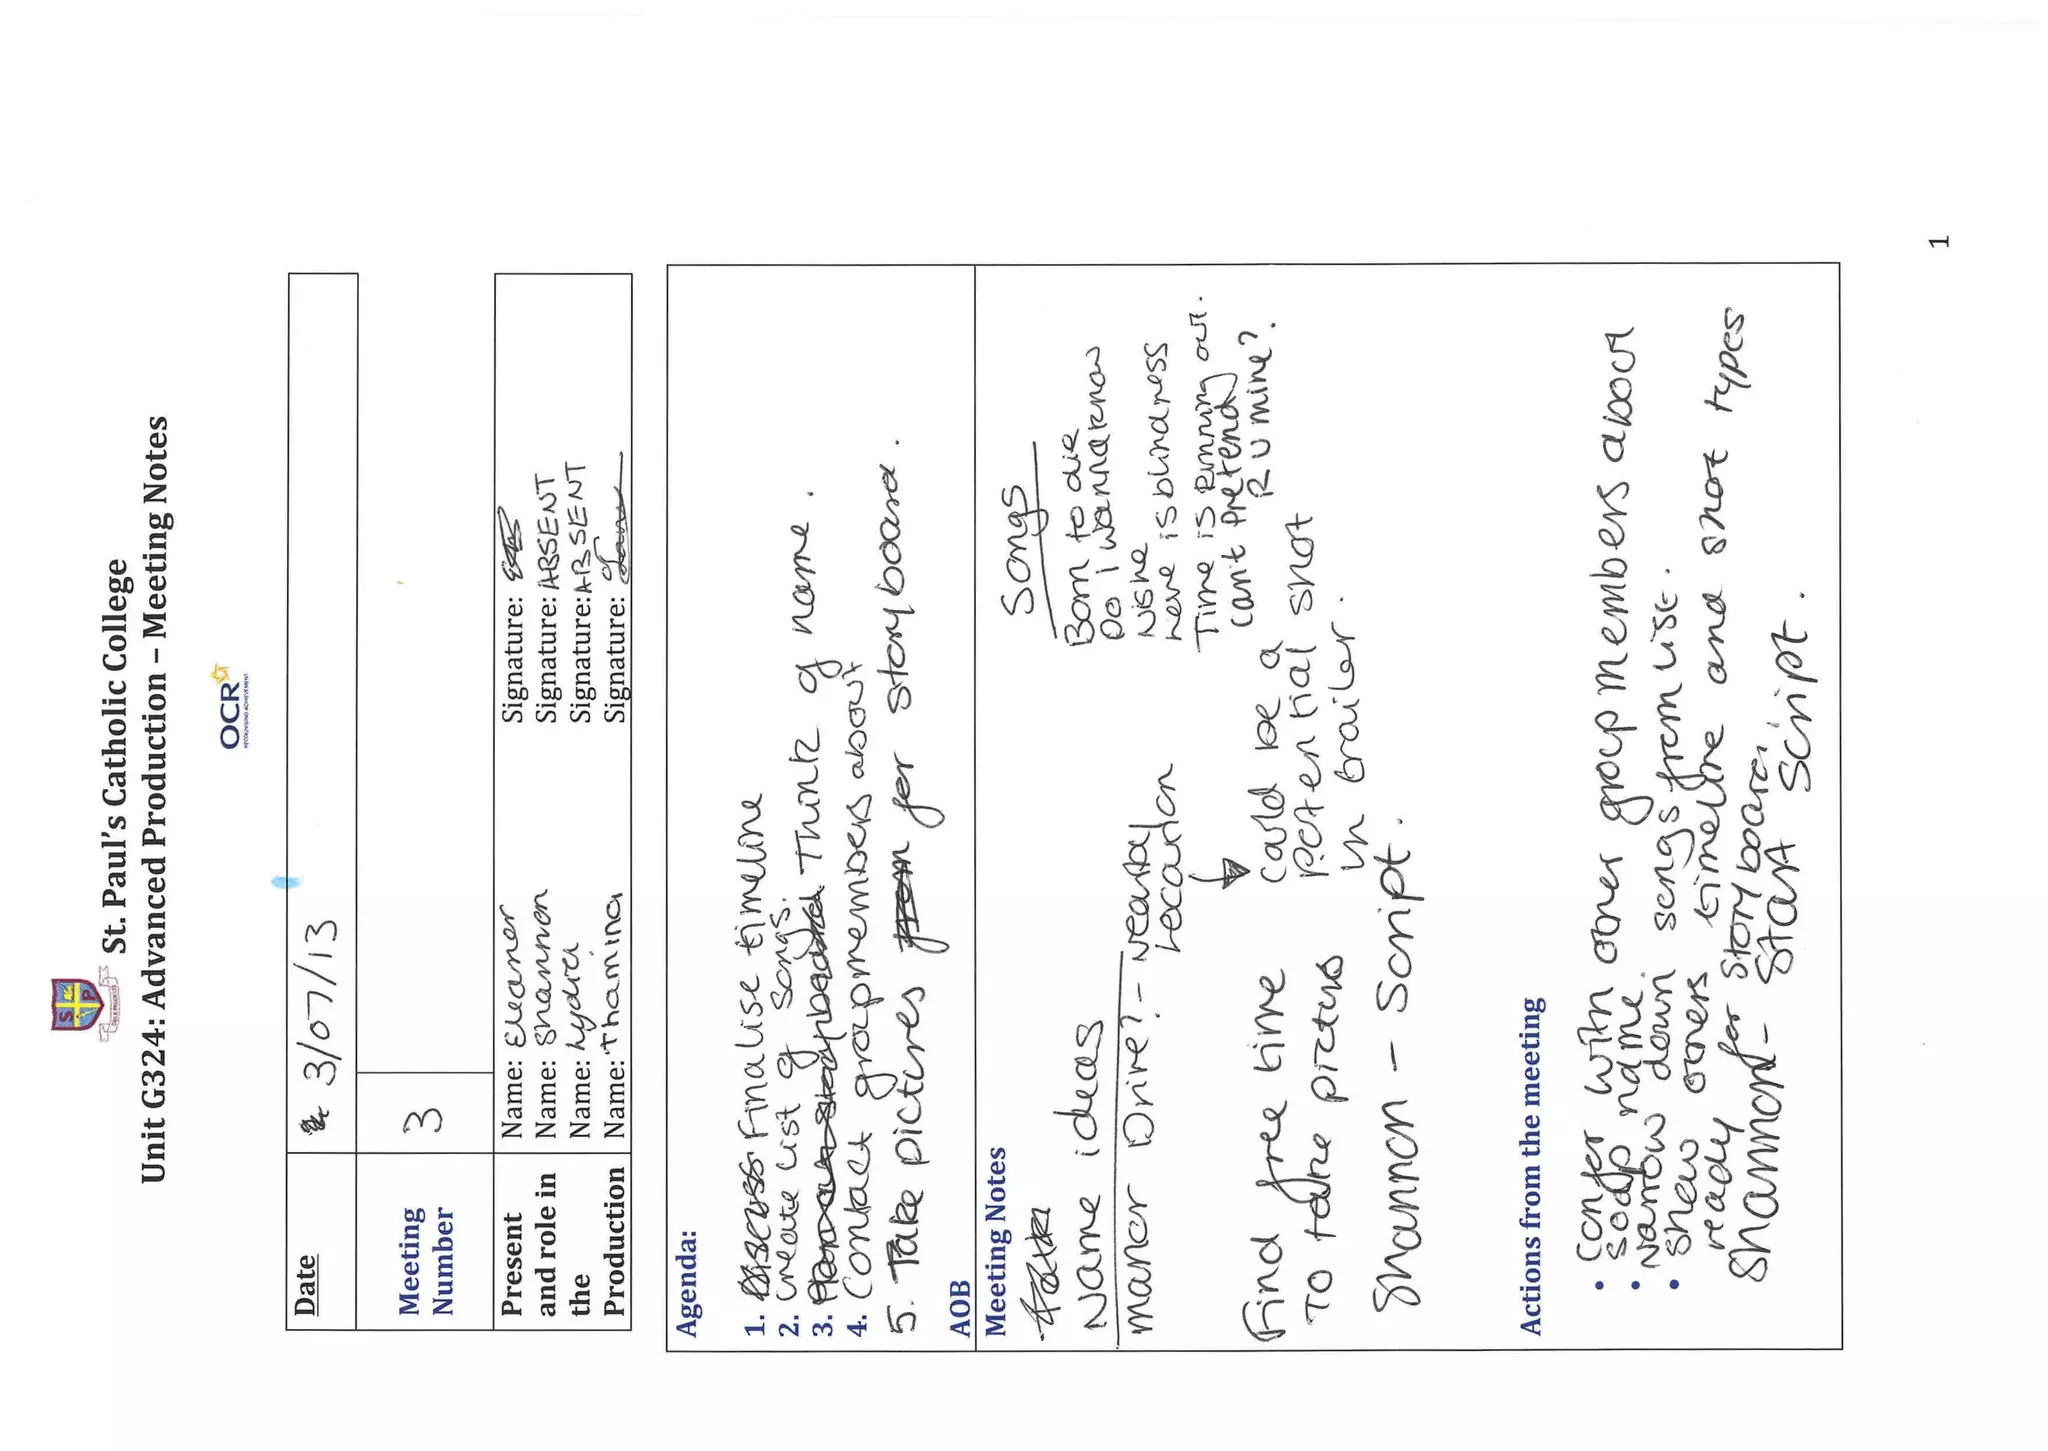 St. Paul's Catholic College
Unit G324: Advanced Production – Meeting Notes
OCR
RECOGNISING ACHIEVEMENT
Date 3/07/13
Meeting Number 3
Present and role in the Production
Name: Eleanor Signature:
Name: Shannon Signature: ABSENT
Name: Lydia Signature: ABSENT
Name: Thamina Signature:
Agenda:
1. Discuss Finalise timeline
2. Create list of songs.
3. Think of name.
4. Contact group members about
5. Take pictures from for storyboard.
AOB
Meeting Notes
Name ideas
Manor Drive? - Nearby
Location
could be a
potential shot
in trailer.
Songs
Born to die
Do I wanna know
Nishe
Love is blindness
Time is Running out.
Can't Pretend
R U mine?.
Find free time
To take pictures
Shannon - Script.
Actions from the meeting
• Confer with other group members about
soap name.
• Narrow down songs from list.
• Show others timeline and shot types
ready for story board.
Shannon - Start Script.
1